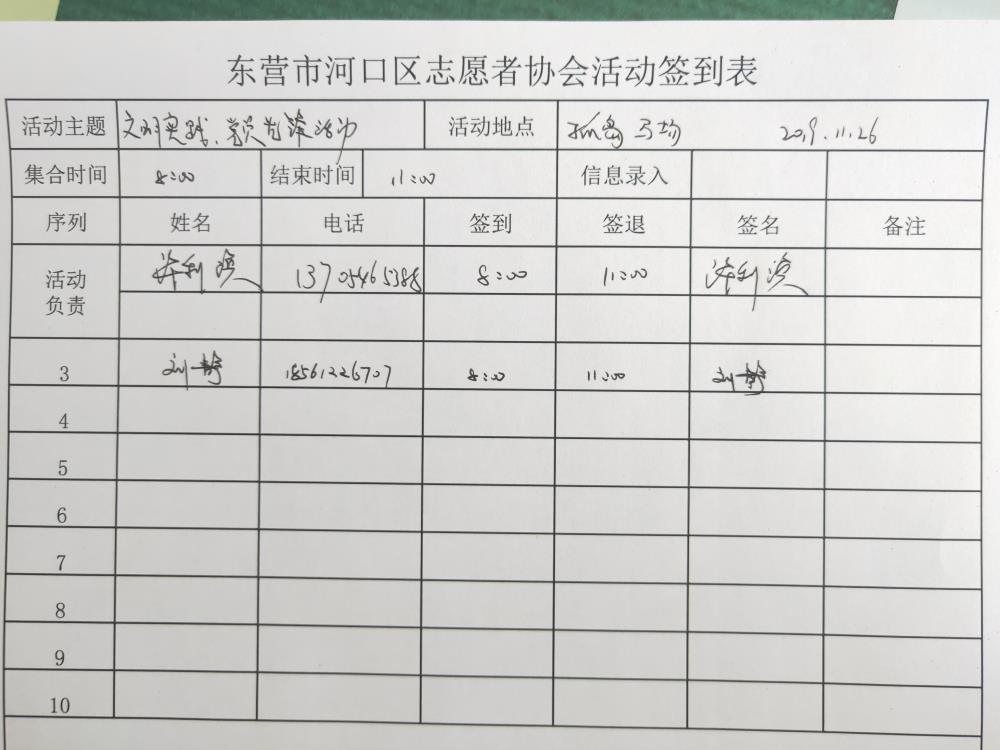 东营市河口区志愿者协会活动签到表
活动主题 文明实践、党员先锋活动 活动地点 孤岛马场 2019.11.26
集合时间 8:00 结束时间 11:00 信息录入
序列 姓名 电话 签到 签退 签名 备注
活动负责 利滨 13705465388 8:00 11:00 利滨
3 刘静 18561226707 8:00 11:00 刘静
4
5
6
7
8
9
10